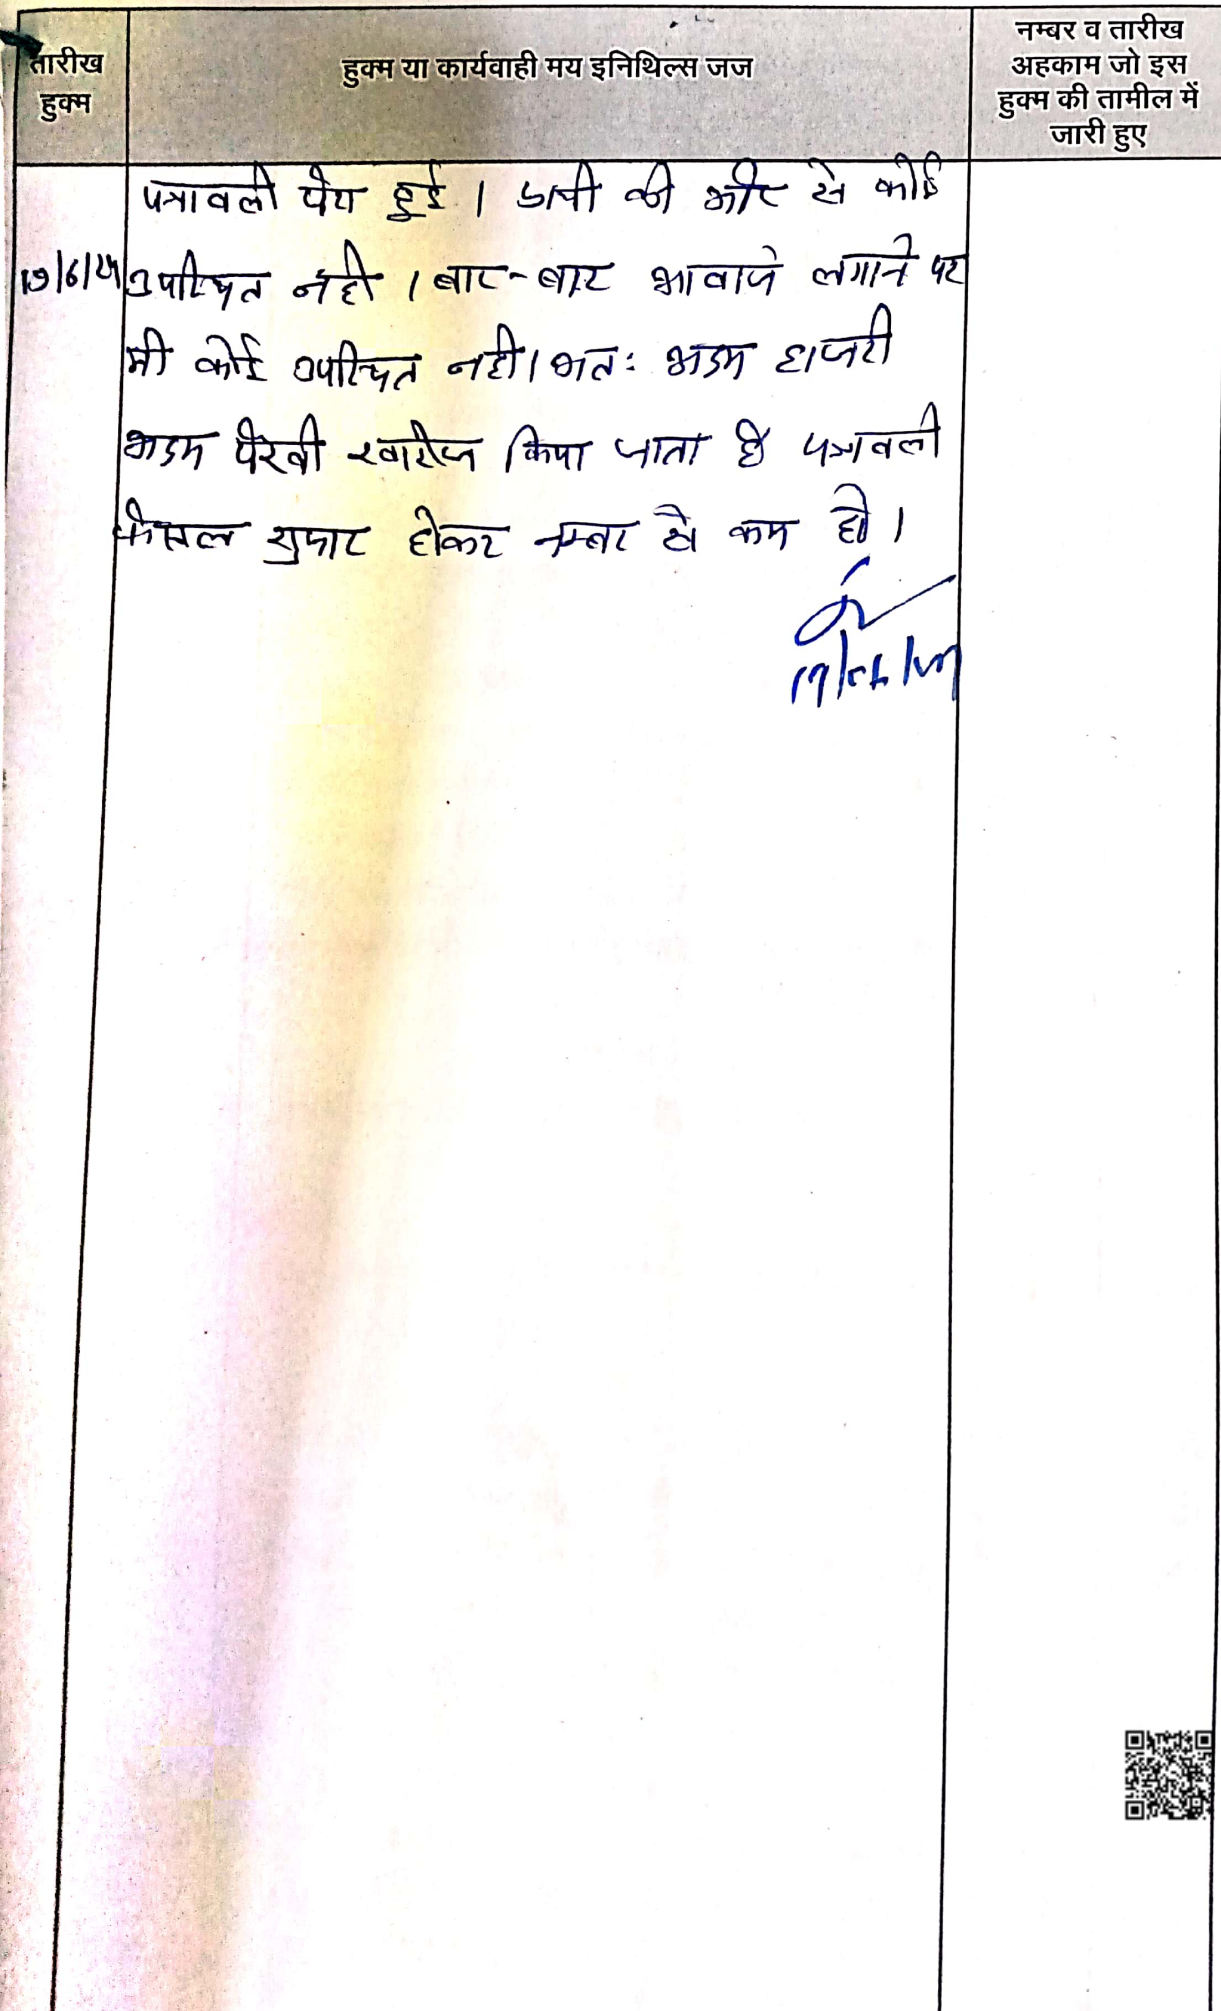 तारीख
हुक्म
हुक्म या कार्यवाही मय इनिथिल्स जज
नम्बर व तारीख
अहकाम जो इस
हुक्म की तामील में
जारी हुए
पत्रावली पेश हुई । की ओर से कोई
उपस्थित नही । बार-बार आवाजे लगाने पर
भी कोई उपस्थित नही। अतः अदम हाजरी
अदम पैरवी खारीज किया जाता है पत्रावली
फैसल शुमार होकर नम्बर से कम हो ।